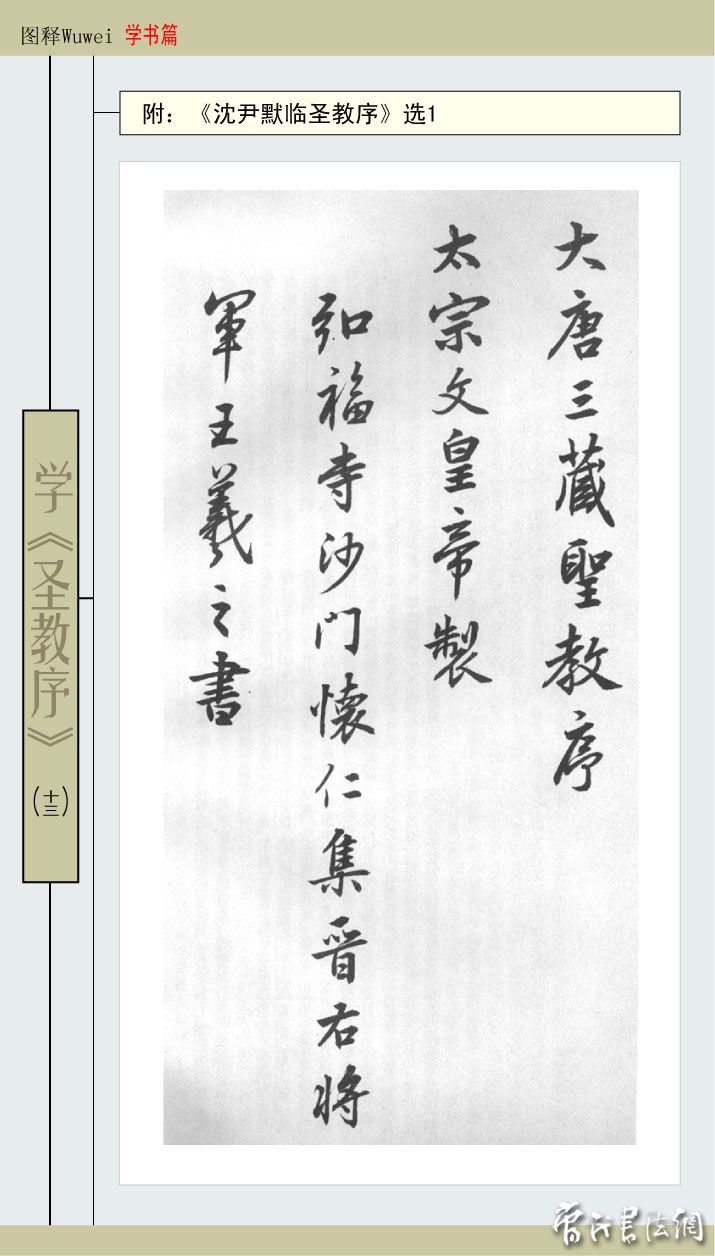 图释Wuwei 学书篇
附：《沈尹默临圣教序》选1
大唐三藏聖教序
太宗文皇帝製
弘福寺沙门懷仁集晉右將
軍王羲之書
学《圣教序》
(十三)